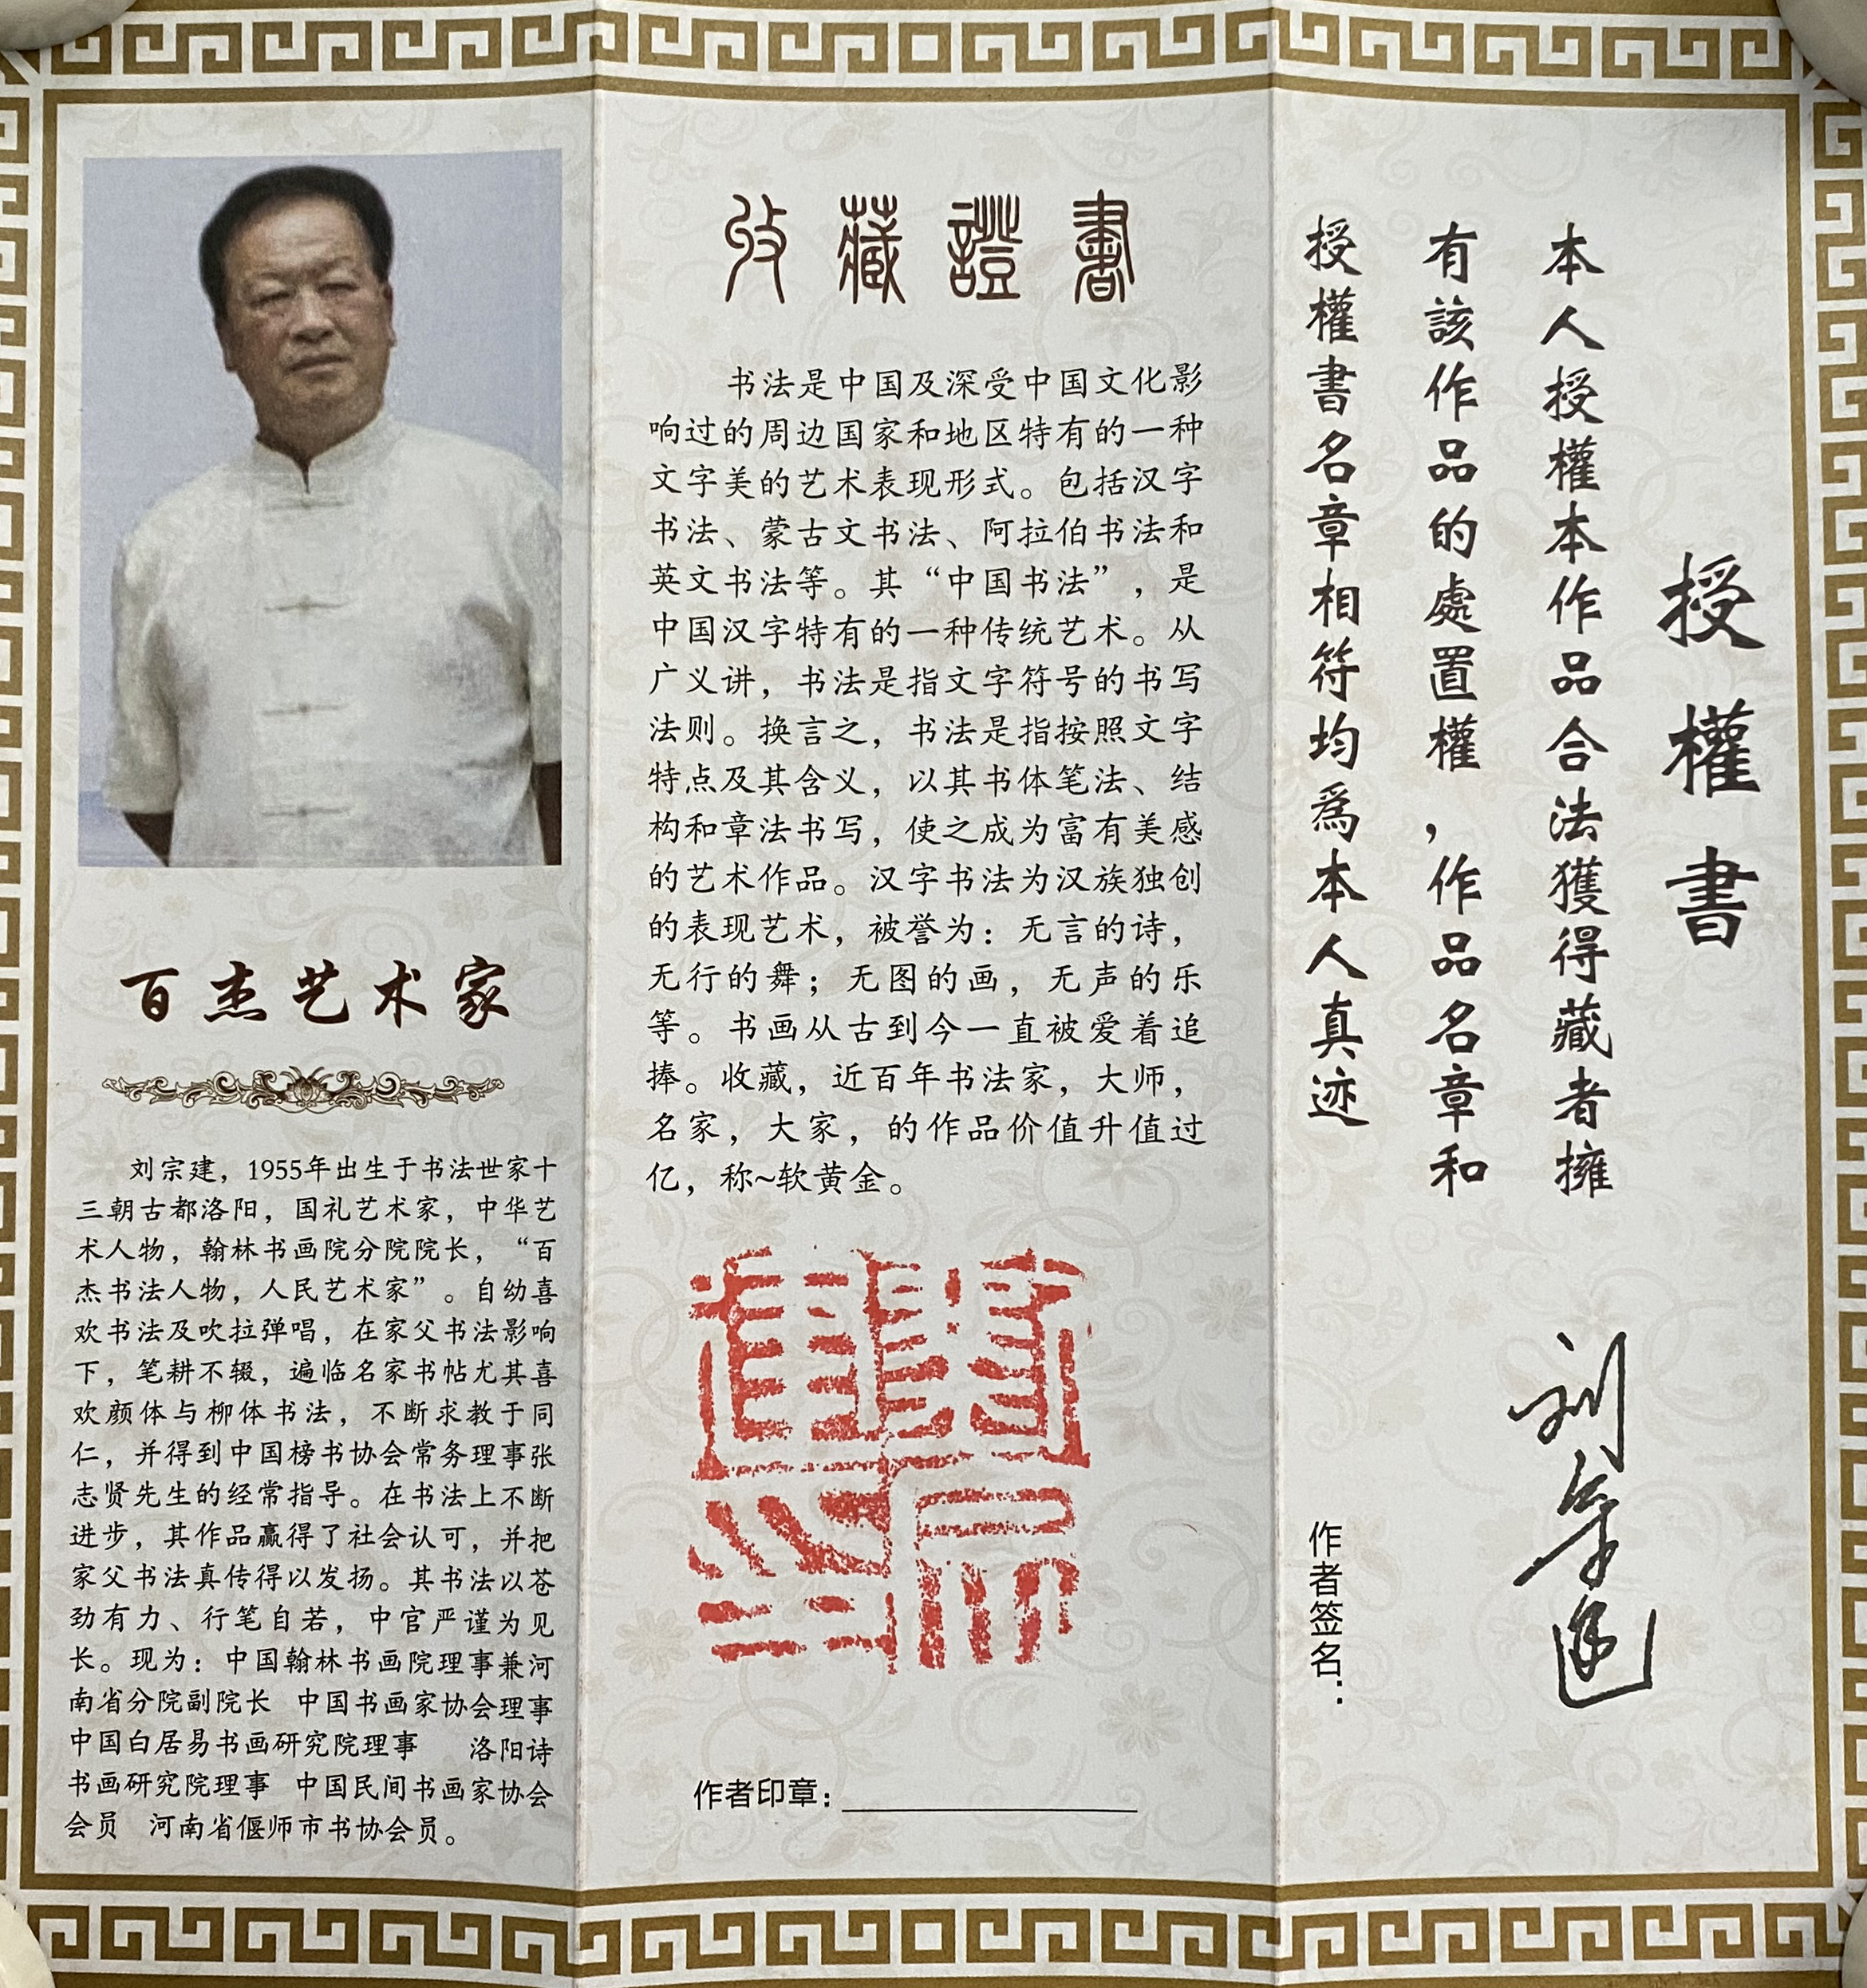 百杰艺术家
刘宗建，1955年出生于书法世家十
三朝古都洛阳，国礼艺术家，中华艺
术人物，翰林书画院分院院长，“百
杰书法人物，人民艺术家”。自幼喜
欢书法及吹拉弹唱，在家父书法影响
下，笔耕不辍，遍临名家书帖尤其喜
欢颜体与柳体书法，不断求教于同
仁，并得到中国榜书协会常务理事张
志贤先生的经常指导。在书法上不断
进步，其作品赢得了社会认可，并把
家父书法真传得以发扬。其书法以苍
劲有力、行笔自若，中官严谨为见
长。现为：中国翰林书画院理事兼河
南省分院副院长 中国书画家协会理事
中国白居易书画研究院理事 洛阳诗
书画研究院理事 中国民间书画家协会
会员 河南省偃师市书协会员。
收藏證書
书法是中国及深受中国文化影
响过的周边国家和地区特有的一种
文字美的艺术表现形式。包括汉字
书法、蒙古文书法、阿拉伯书法和
英文书法等。其“中国书法”，是
中国汉字特有的一种传统艺术。从
广义讲，书法是指文字符号的书写
法则。换言之，书法是指按照文字
特点及其含义，以其书体笔法、结
构和章法书写，使之成为富有美感
的艺术作品。汉字书法为汉族独创
的表现艺术，被誉为：无言的诗，
无行的舞；无图的画，无声的乐
等。书画从古到今一直被爱着追
捧。收藏，近百年书法家，大师，
名家，大家，的作品价值升值过
亿，称~软黄金。
作者印章：
授權書
本人授權本作品合法獲得藏者擁
有該作品的處置權，作品名章和
授權書名章相符均爲本人真迹
作者签名：
刘宗建